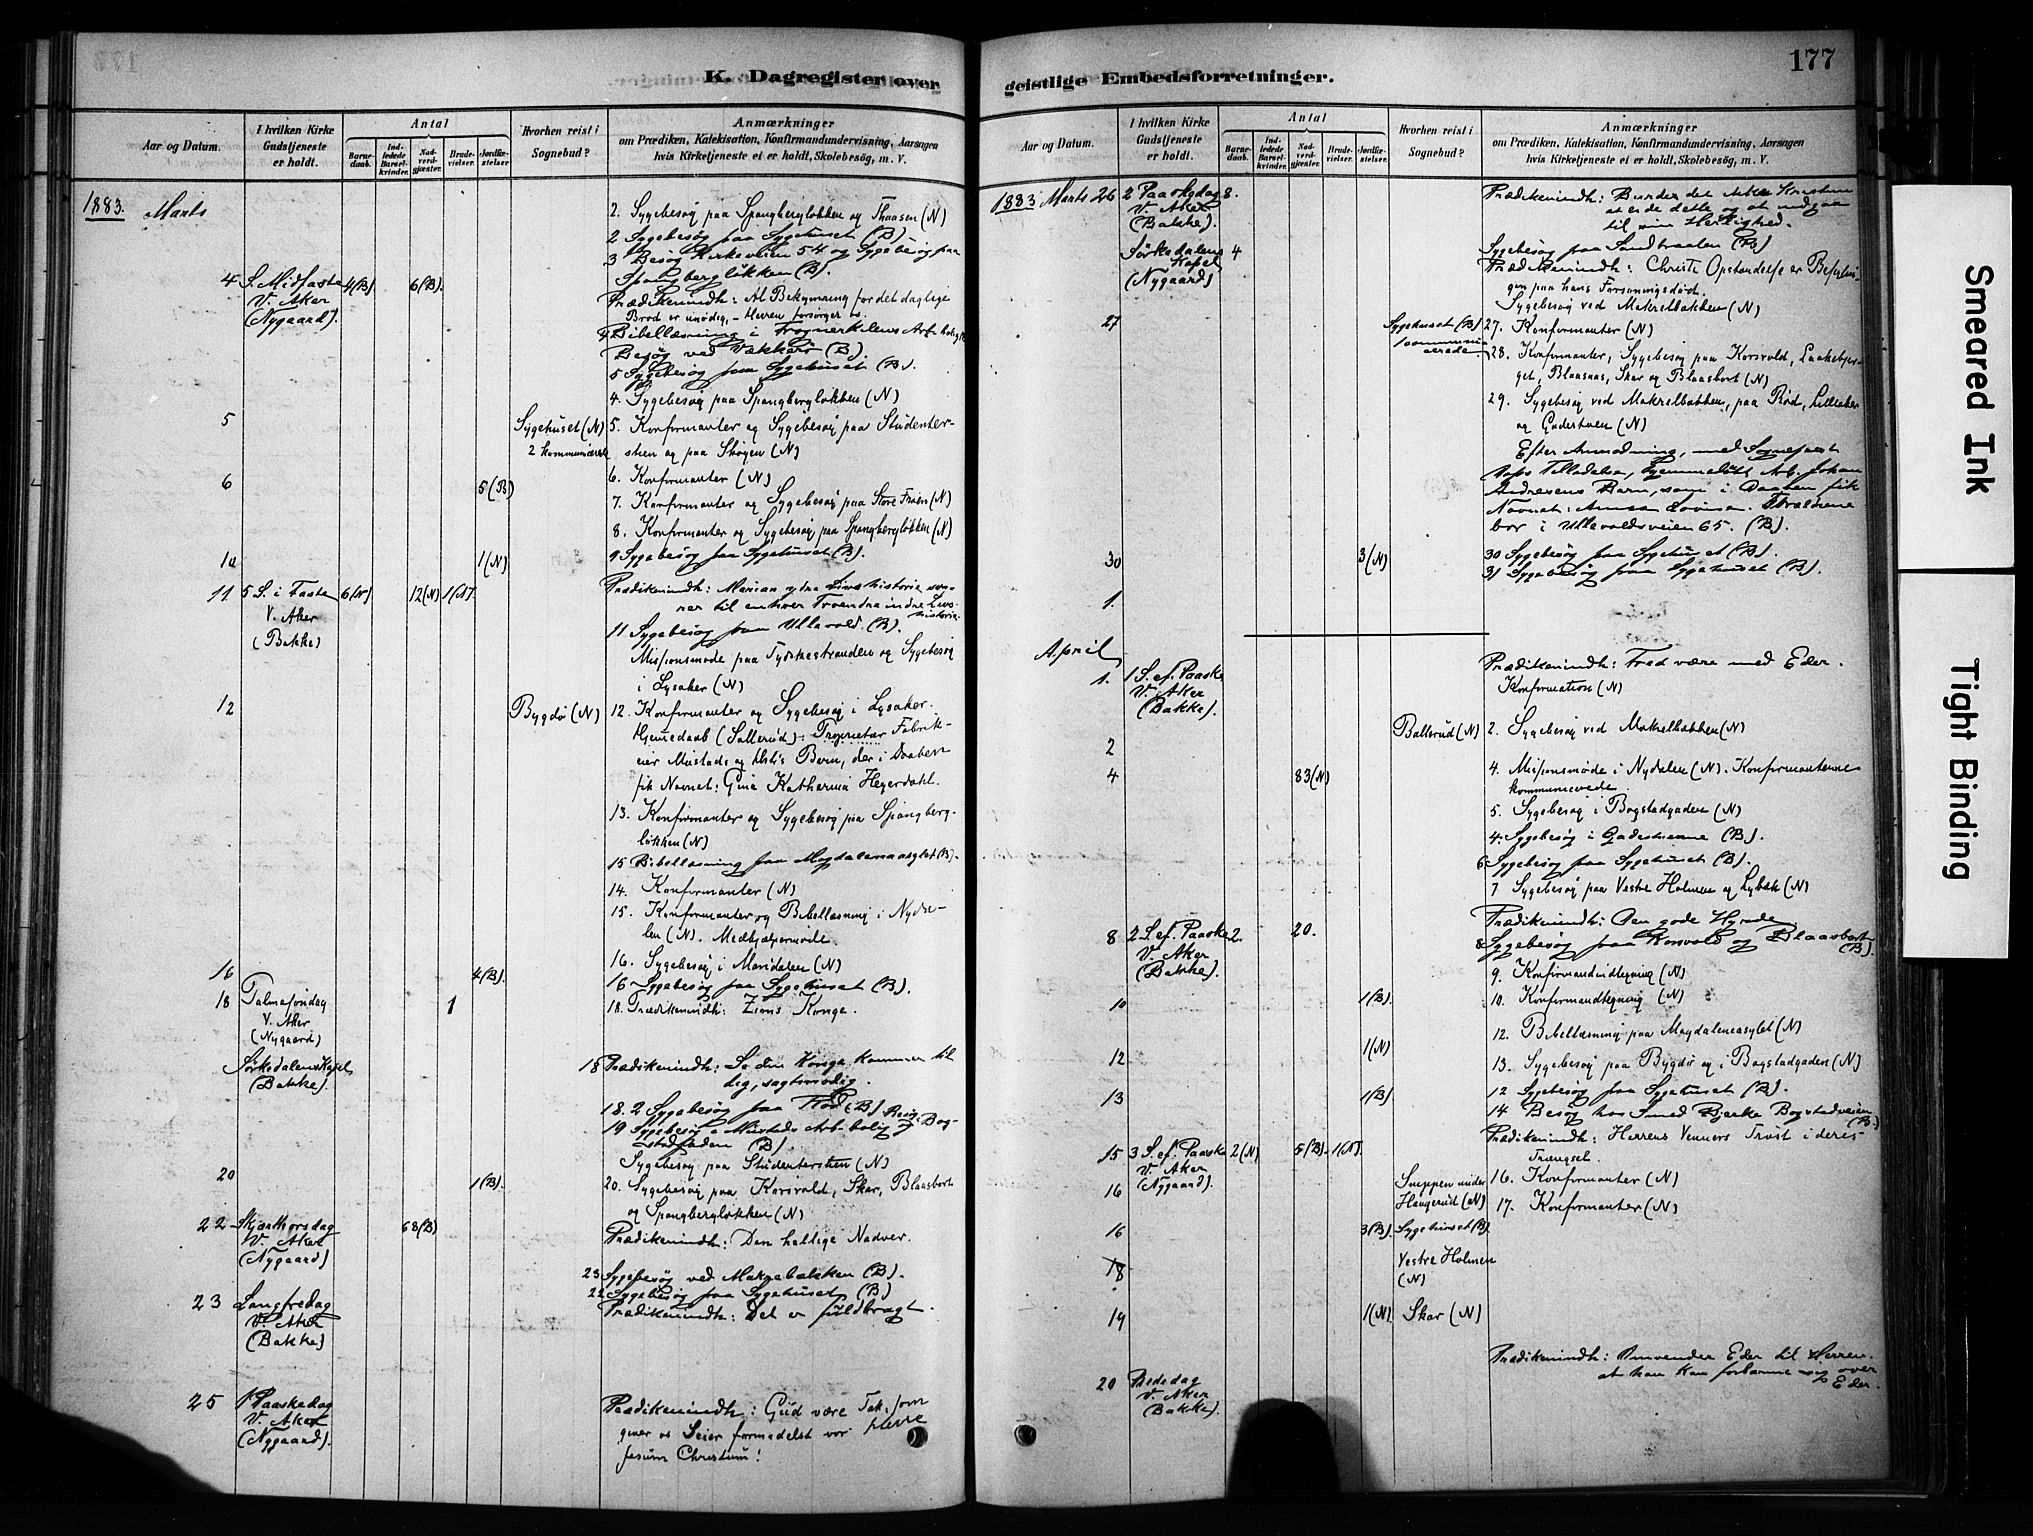 K. Dagregister over
Aar og Datum.
I hvilken Kirke Gudstjeneste er holdt.
Antal
Barne-daab.
Ind-ledede Barsel-kvinder.
Nad-verd-gjæster.
Brude-vielser.
Jordfæ-stelser
Hvorhen reist i Sognebud?
Anmærkninger
om Prædiken, Katekisation, Konfirmandundervisning, Aarsagen
hvis Kirketjeneste ei er holdt, Skolebesøg, m. V.
1883. Marts
2. Sygebesøg paa Spangbergløkken og Thaasen (N)
2 Sygebesøg paa Sygehuset (B)
3 Besøg Kirkeveien 54 og Sygebesøg paa
Spangbergløkken (B).
4 S. Midfaste 4 (B) 6 (B).
V. Aker
(Nygaard).
Prædikenindh: At Bekymring for det daglige
Brød er unødig, - Herren forsørger os.
4 Bibellæsning i Frognerkilens Arb. bolig
Besøg ved Vækkerø (B).
5 Sygebesøg paa Sygehuset (B).
4. Sygebesøg paa Spangbergløkken (N)
5 Sygehuset (N) 5. Konfirmanter og Sygebesøg paa Studenter-
2 kommunicerede stien og paa Skogen (N)
6 5 (B) 6. Konfirmanter (N)
7. Konfirmanter og Sygebesøg paa Store Frøen (N)
8. Konfirmanter og Sygebesøg paa Spangbergløkken (N)
10 1 (N) 9 Sygebesøg paa Sygehuset (B).
11 5 S. i Faste 6 (N) 12 (N) 1 (N).
V. Aker
(Bakke)
Prædikenindh: Marias ydre Livshistorie sva-
rer til enhver Troendes indre Livs-
historie.
11 Sygebesøg paa Ullevold (B).
Missionsmøde paa Tydskestranden og Sygebesøg
i Lysaker (N)
12 Bygdø (N) 12. Konfirmanter og Sygebesøg i Lysaker.
Hjemmedaab (Sollerud): Proprietær Fabrik-
eier Mustads og Hstis Barn, der i Daaben
fik Navnet: Gina Katharina Hegerdahl.
13. Konfirmanter og Sygebesøg paa Spangberg-
løkken (N)
15 Bibellæsning paa Magdalenaasylet (B).
14. Konfirmanter (N)
15. Konfirmanter og Bibellæsning i Nyda-
len (N). Medhjælpermøde.
16. Sygebesøg i Maridalen (N)
16 4 (B). 16 Sygebesøg paa Sygehuset (B).
18 Palmesøndag 1
V. Aker
(Nygaard)
18. Prædikenindh: Zions Konge.
Sørkedalens Kapel
(Bakke).
18 Prædikenindh: Se din Konge kommer til
dig, sagtmodig.
18. 2 Sygebesøg paa Røa (B)
19 Sygebesøg i Mustads Arb-bolig Besøg Bog-
stadgaden (B)
Sygebesøg paa Studenterstien (N)
20 1 (B). 20. Sygebesøg paa Korsvold, Skar, Blaasbort
og Spangbergløkken (N)
22 Skjærthorsdag 68 (B)
V. Aker
(Nygaard)
Prædikenindh: Den hellige Nadver.
23 Sygebesøg ved Makrelbækken (B).
22 Sygebesøg paa Sygehuset (B)
23 Langfredag
V. Aker
(Bakke)
Prædikenindh: Det er fuldbragt.
25 1 Paaskedag
V. Aker
(Nygaard).
Prædikenindh: Gud være Tak, som
giver os Seier formedelst vor Herre
Jesum Christum!
177
geistlige Embedsforretninger.
Aar og Datum.
I hvilken Kirke Gudstjeneste er holdt.
Antal
Barne-daab.
Ind-ledede Barsel-kvinder.
Nad-verd-gjæster.
Brude-vielser.
Jordfæ-stelser
Hvorhen reist i Sognebud?
Anmærkninger
om Prædiken, Katekisation, Konfirmandundervisning, Aarsagen
hvis Kirketjeneste ei er holdt, Skolebesøg, m. V.
1883 Marts 26 2 Paaskedag 8.
V. Aker
(Bakke).
Prædikenindh: Burde det ikke Kristum
at lide dette og at indgaa
til sin Herlighed.
Sørkedalens 4
Kapel
(Nygaard)
Sygebesøg paa Sandbraaten (B)
Prædikenindh: Christi Opstandelse er Besegl-
gen paa hans Forsoningsdød.
Sygebesøg ved Makrelbækken (N)
27 Sygehuset (B) 27. Konfirmanter (N)
1 communi-
cerede
28. Konfirmanter, Sygebesøg paa Korsvold, Laakeber-
get, Blaasaas, Skar og Blaasbort (N)
29. Sygebesøg ved Makrelbækken, paa Rød, Lilleaker
og Gaderhuen (N)
Efter Anmodning, med Sognepræst
Tilladelse, hjemmedøbt Arb. Johan
Andresens Barn, som i Daaben fik
Navnet: Anna Lovise. Forældrene
bor i Ullevoldsveien 65. (B).
30 3 (N) 30 Sygebesøg paa Sygehuset (B).
31 Sygebesøg paa Sygehuset (B).
1.
April
1. 1 S. ef. Paaske
V. Aker
(Bakke).
Prædikenindh: Fred være med Eder.
Konfirmation (N)
Ballerud (N) 2. Sygebesøg ved Makrelbækken (N)
2
4 83 (N) 4. Missionsmøde i Nydalen (N). Konfirmanterne
kommunicerede.
5. Sygebesøg i Bogstadgaden (N)
4. Sygebesøg i Gadestuerne (B).
6 Sygebesøg paa Sygehuset (B).
7 Sygebesøg paa Vestre Holmen og Lybæk (N)
8 2 S. ef. Paaske 2. 20.
V. Aker
(Bakke).
Prædikenindh: Den gode Hyrde.
8 Sygebesøg paa Korsvold og Blaasbort
(B).
9. Konfirmandindtegning (N)
10 1 (B). 10. Konfirmandtegning (N)
12. Bibellæsning paa Magdaleneasylet (N)
12 1 (N) 13. Sygebesøg paa Bygdø og i Bogstadgaden (N)
13 1 (B) 12 Sygebesøg paa Sygehuset (B).
14 Besøg hos Smed Bjerke Bogstadveien
(B.)
15 3 S. ef. Paaske 2 (N) 5 (B). 1 (N).
V. Aker
(Nygaard).
Prædikenindh: Herrens Venners Trøst i deres
Trængsel.
16 Snippen under
Haugerud (N)
16. Konfirmanter (N)
17. Konfirmanter (N)
16 3 (B). Sygehuset (B).
18 Vestre Holmen
(N)
19 1 (N) Skar (N)
20 Bededag
V. Aker
(Bakke).
Prædikenindh: Omvender Eder til Herren.
at han kan forbarme sig over
Eder.
Smeared Ink
Tight Binding